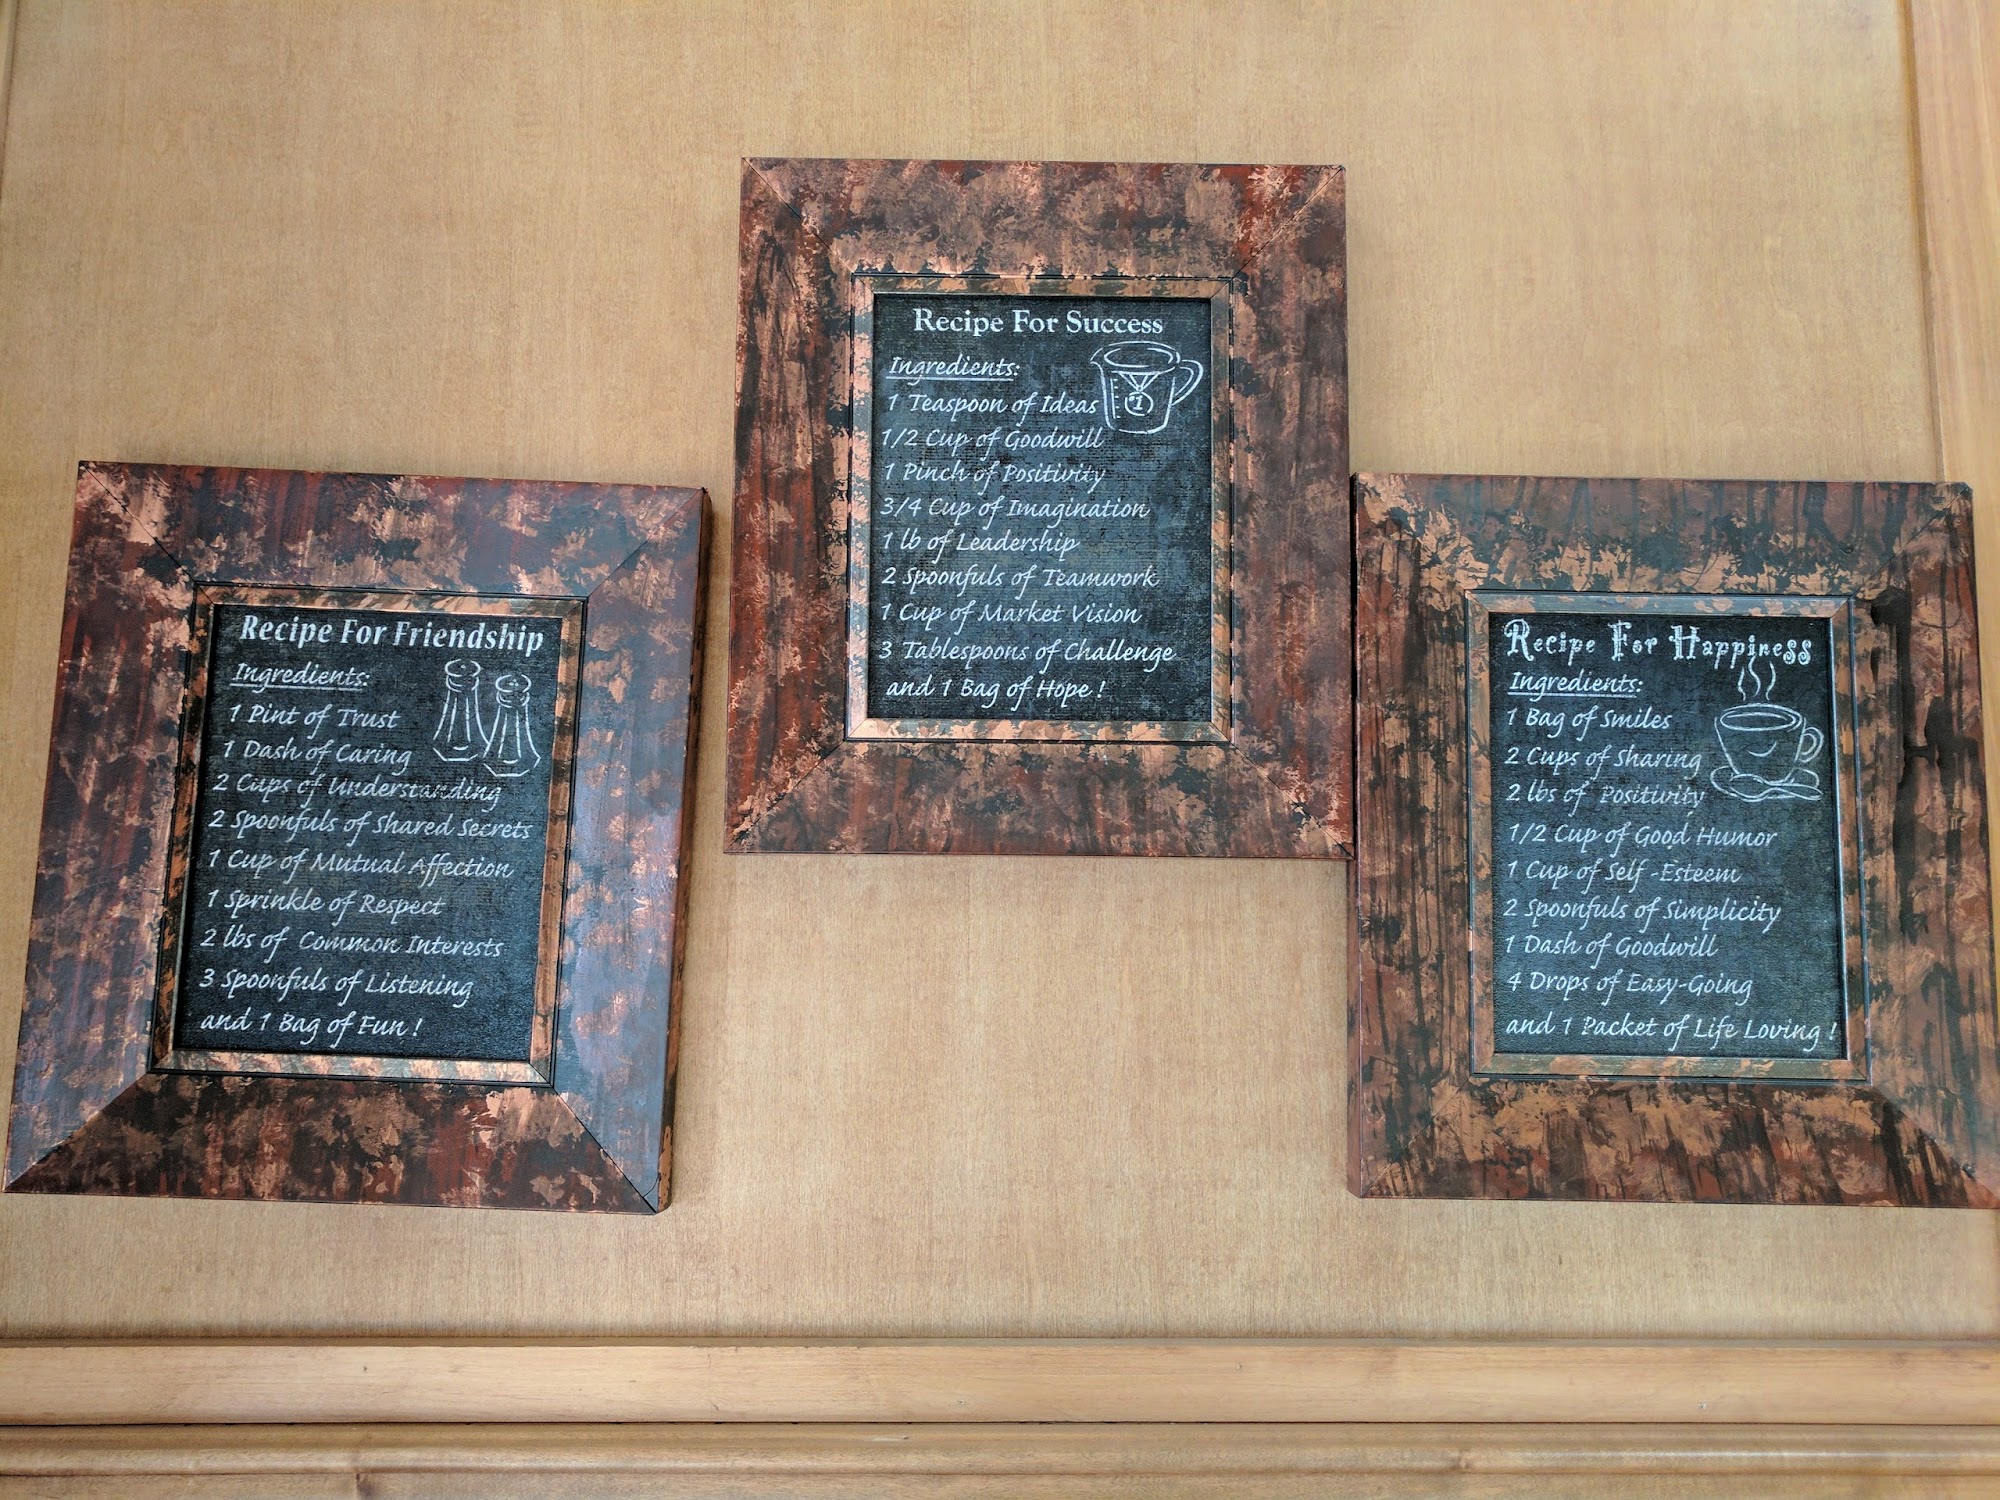 Recipe For Friendship
Ingredients:
1 Pint of Trust
1 Dash of Caring
2 Cups of Understanding
2 Spoonfuls of Shared Secrets
1 Cup of Mutual Affection
1 Sprinkle of Respect
2 lbs of Common Interests
3 Spoonfuls of Listening
and 1 Bag of Fun !
Recipe For Success
Ingredients:
1 Teaspoon of Ideas
#1
1/2 Cup of Goodwill
1 Pinch of Positivity
3/4 Cup of Imagination
1 lb of Leadership
2 Spoonfuls of Teamwork
1 Cup of Market Vision
3 Tablespoons of Challenge
and 1 Bag of Hope !
Recipe For Happiness
Ingredients:
1 Bag of Smiles
2 Cups of Sharing
2 lbs of Positivity
1/2 Cup of Good Humor
1 Cup of Self -Esteem
2 Spoonfuls of Simplicity
1 Dash of Goodwill
4 Drops of Easy-Going
and 1 Packet of Life Loving !